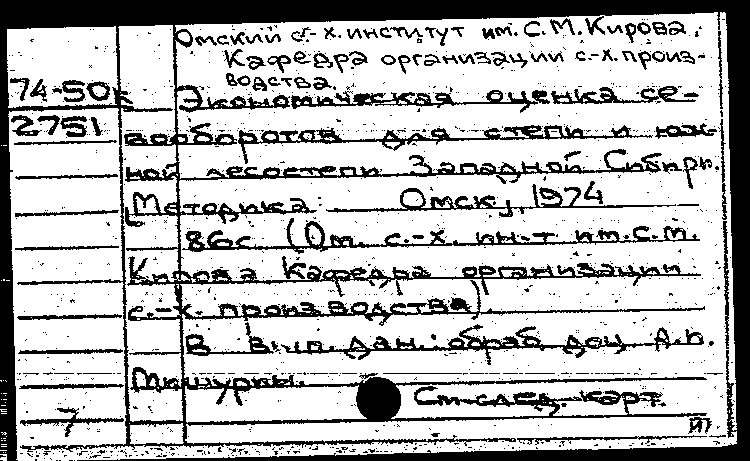 Омский с.-х. институт им. С.М. Кирова.
Кафедра организации с.-х. произ-
водства.
74-50к
2751
Экономическая оценка се-
вооборотов для степи и юж-
ной лесостепи Западной Сибири.
[Методика. Омск], 1974
86с. (Ом. с.-х. ин-т им. С.М.
Кирова Кафедра организации
с.-х. производства)
В вып. дан.: обраб. доц. А.П.
Мишурин.
См. след. карт.
7